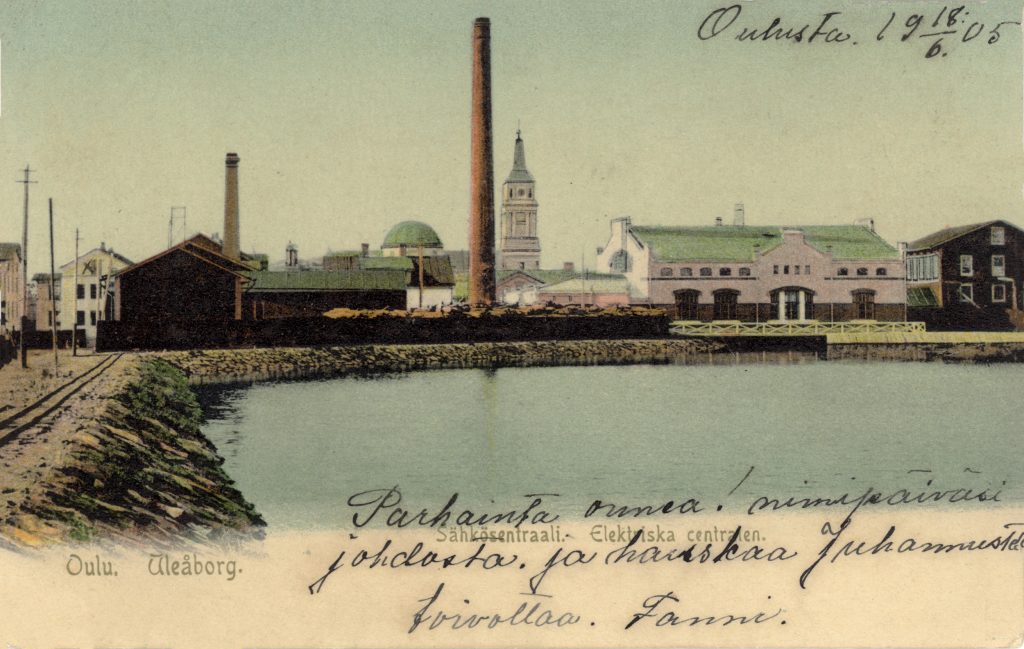 Oulusta. 19 18/6. 05
Parhainta onnea! nimipäiväsi
Sähkösentraali. Elektriska centralen.
johdosta. ja hauskaa Juhannusta
Oulu. Uleåborg.
toivottaa. Fanni.